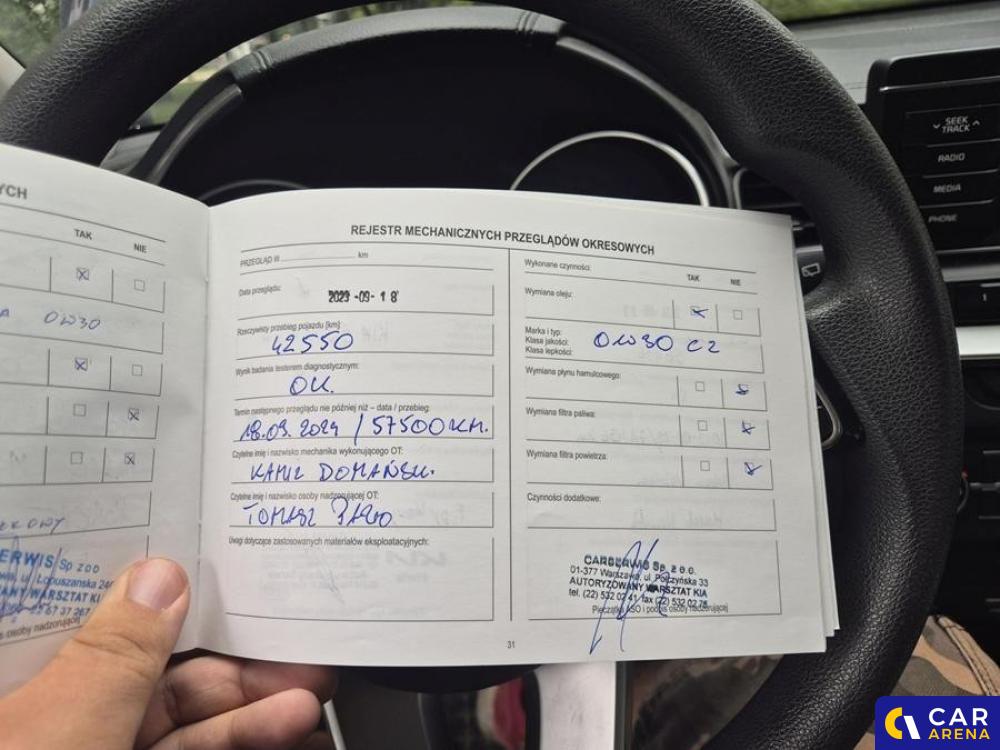 YCH
TAK
NIE
0W30
ERWIS Sp z oo
ul. Łopuszańska
WARSZTAT KIA
osoby nadzorującej
REJESTR MECHANICZNYCH PRZEGLĄDÓW OKRESOWYCH
PRZEGLĄD W km
Data przeglądu:
2023 -09- 18
Rzeczywisty przebieg pojazdu [km]:
42550
Wynik badania testerem diagnostycznym:
OK.
Termin następnego przeglądu nie później niż – data / przebieg:
18.09.2024 / 57500 KM.
Czytelne imię i nazwisko mechanika wykonującego OT:
KAMIL DOMAŃSKI.
Czytelne imię i nazwisko osoby nadzorującej OT:
TOMASZ
Uwagi dotyczące zastosowanych materiałów eksploatacyjnych:
Wykonane czynności:
TAK
NIE
Wymiana oleju:
Marka i typ:
Klasa jakości:
Klasa lepkości:
0W30 C2
Wymiana płynu hamulcowego:
Wymiana filtra paliwa:
Wymiana filtra powietrza:
Czynności dodatkowe:
CARSERWIS Sp. z o.o.
01-377 Warszawa, ul. Połczyńska 33
AUTORYZOWANY WARSZTAT KIA
tel. (22) 532 02 41 fax (22) 532 02
Pieczątka ASO i podpis osoby nadzorującej
31
SEEK
TRACK
RADIO
MEDIA
PHONE
1
CAR
ARENA